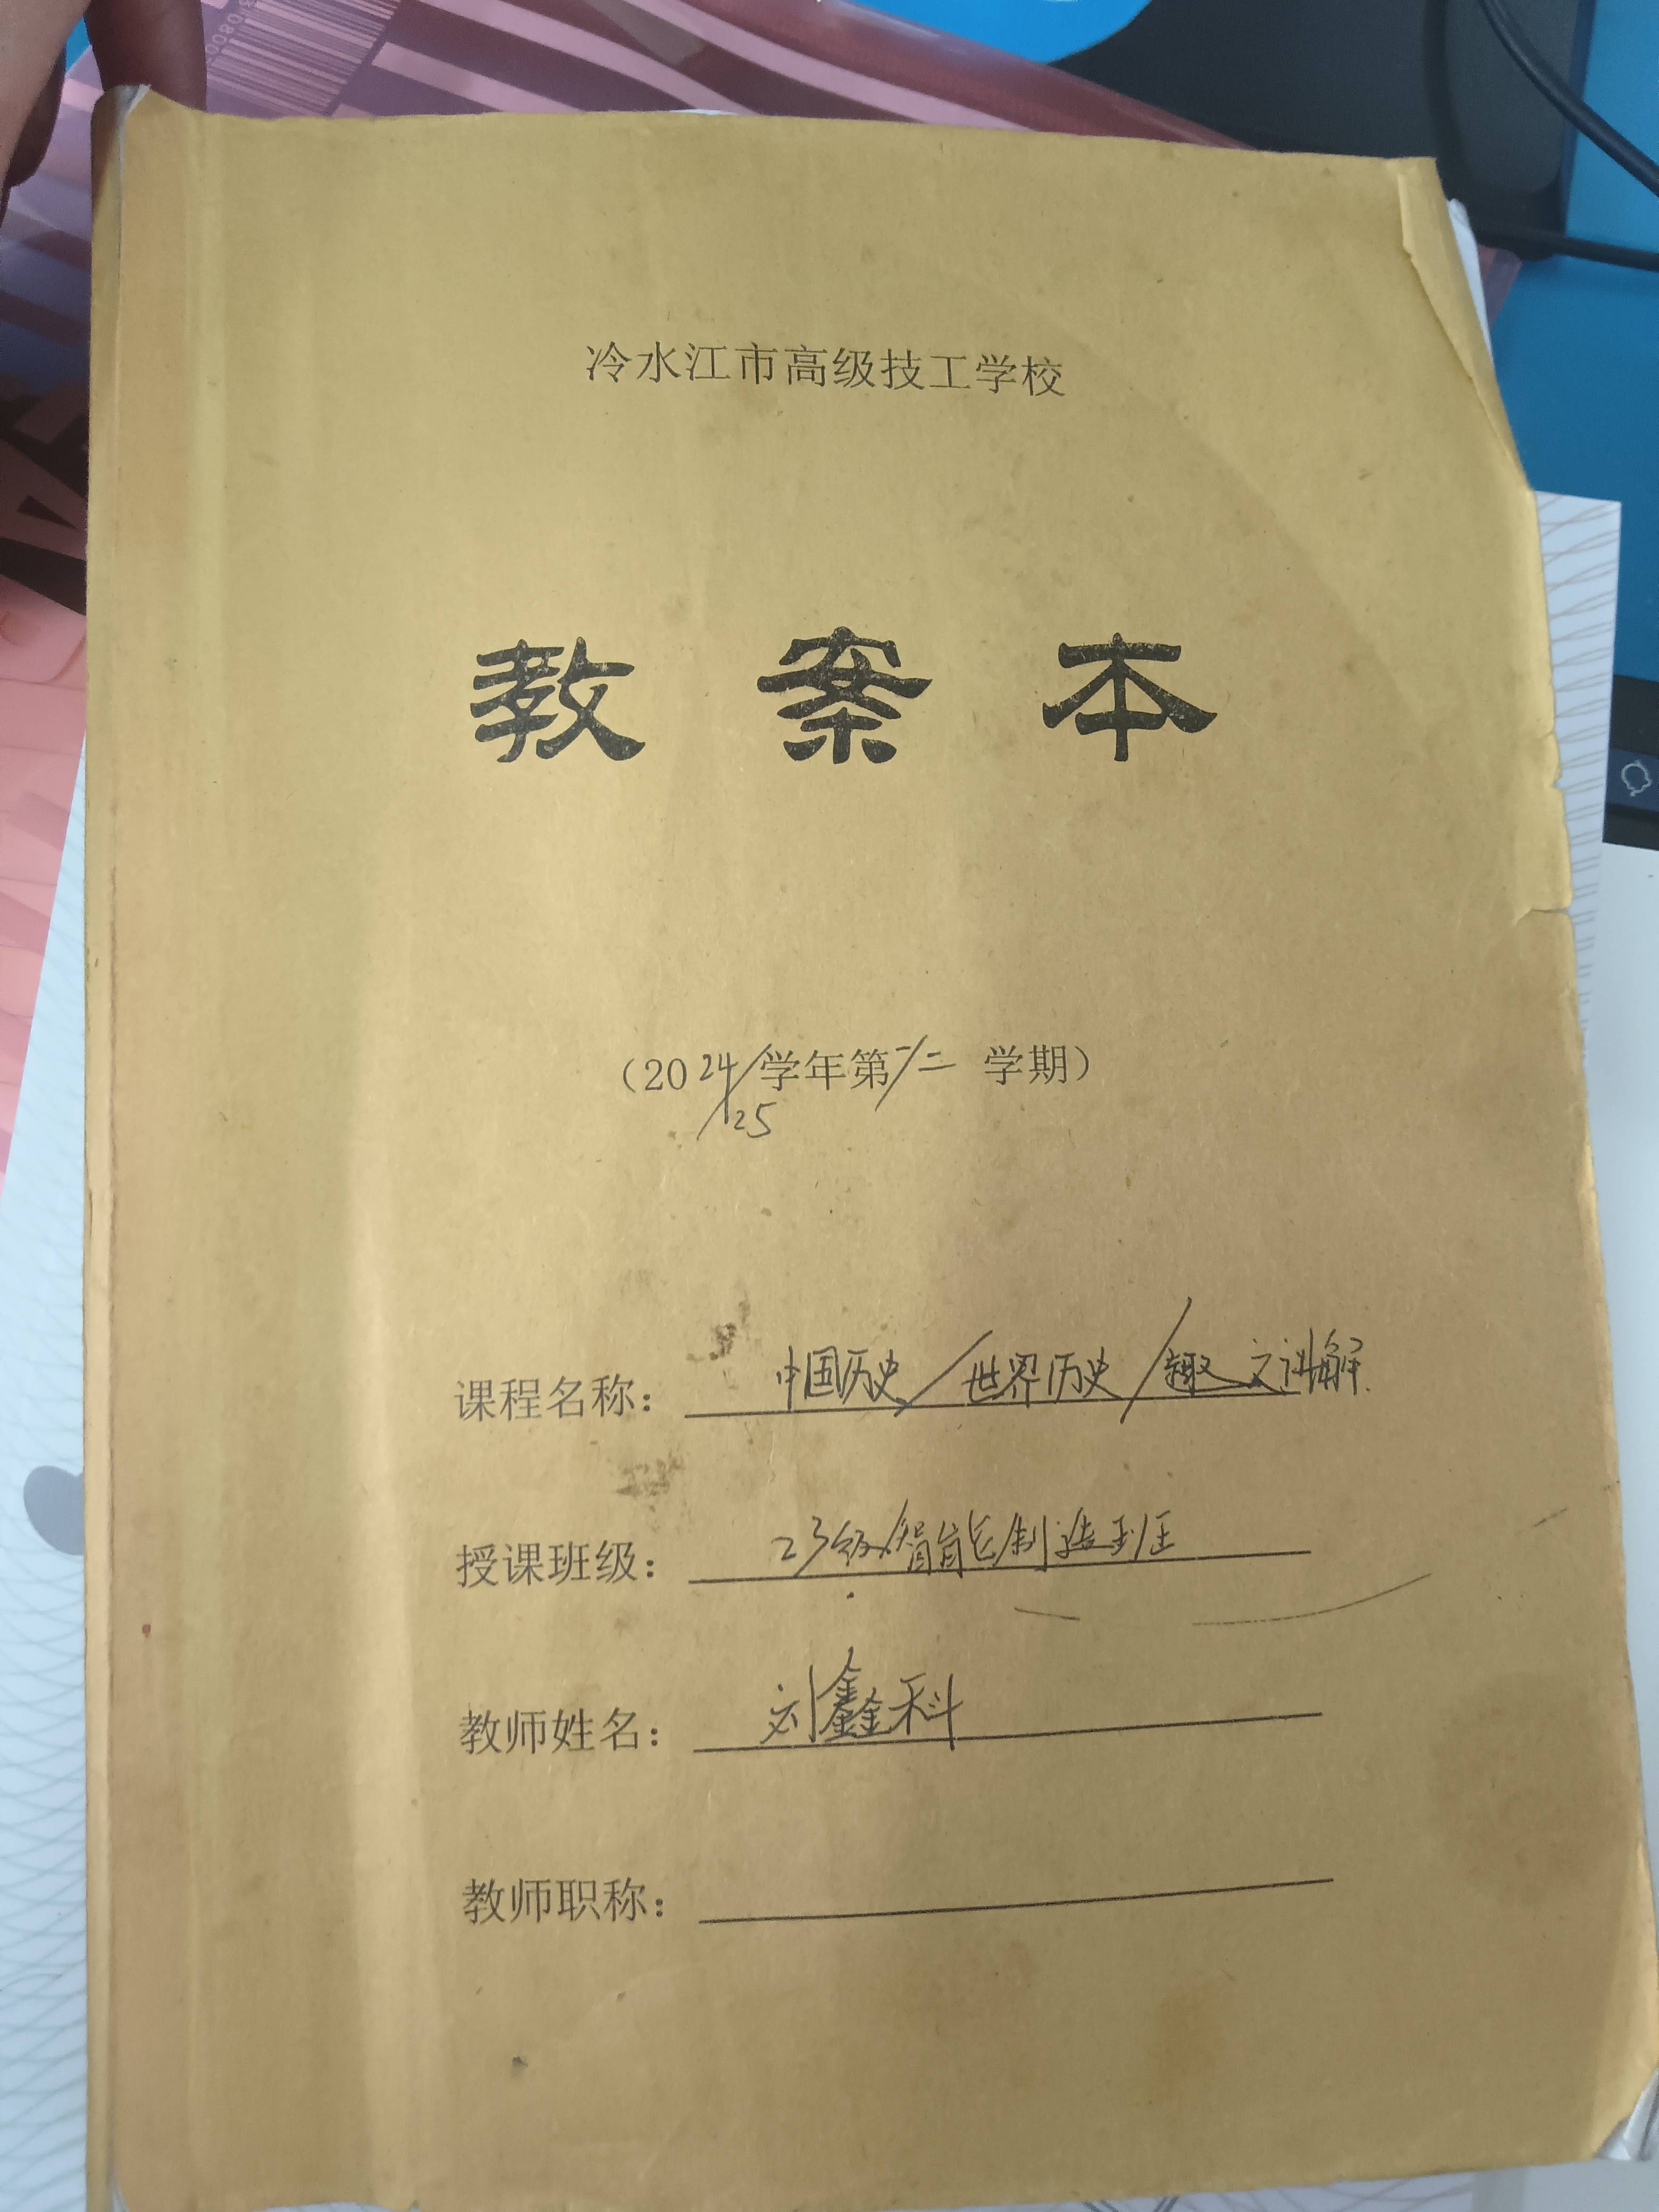 冷水江市高级技工学校
教案本
（2024/学年第一/二学期）
25
课程名称：中国历史/世界历史/趣文讲解.
授课班级：23级智能制造班
教师姓名：刘鑫科
教师职称：